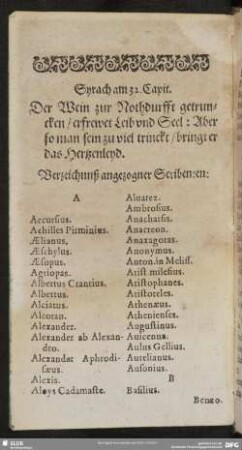 Syrach am 32. Capit.
Der Wein zur Nothdurfft getrun-
cken / erfrewet Leib vnd Seel: Aber
so man sein zu viel trinckt / bringt er
das Hertzenleyd.
Verzeichnuß angezogner Scribenten:
A
Accursius.
Achilles Pirminius.
Ælianus,
Æschylus.
Æsopus.
Agriopas.
Albertus Crantius.
Albertus.
Alciatus.
Alcoran.
Alexander.
Alexander ab Alexan-
dro.
Alexander Aphrodi-
sæus.
Alexis.
Aloys Cadamaste.
Aluarez.
Ambrosius.
Anacharsis.
Anacreon.
Anaxagoras.
Anonymus.
Anton. in Meliss.
Arist milesius.
Aristophanes.
Aristoteles.
Athenæus.
Athenienses.
Augustinus.
Auicenna.
Aulus Gellius.
Aurelianus.
Ausonius.
B
Basilius.
Benzo.
SLUB
DFG